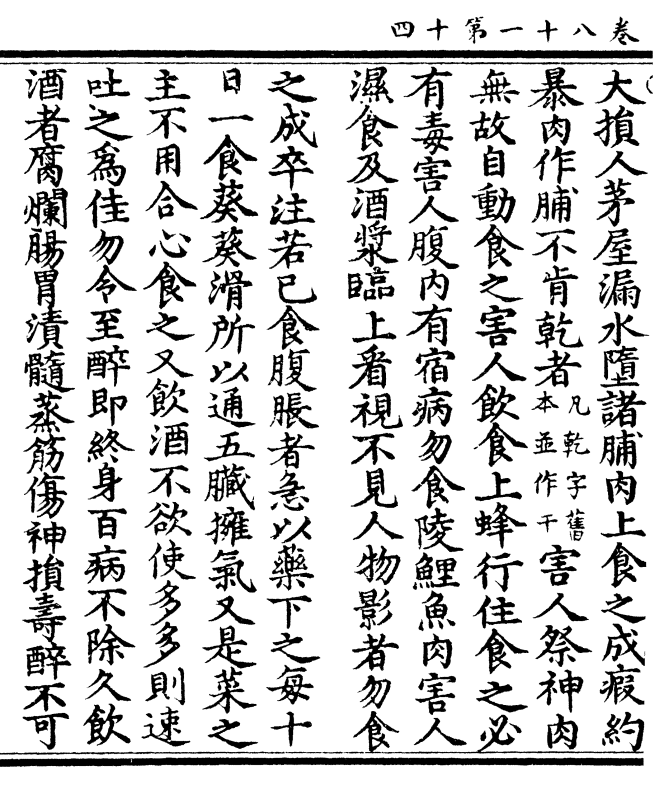 卷八十一第十四
大損人茅屋漏水墮諸脯肉上食之成瘕約
暴肉作脯不肯乾者凡乾字舊本並作干害人祭神肉
無故自動食之害人飲食上蜂行住食之必
有毒害人腹內有宿病勿食陵鯉魚肉害人
濕食及酒漿臨上看視不見人物影者勿食
之成卒注若已食腹脹者急以藥下之每十
日一食葵葵滑所以通五臟擁氣又是菜之
主不用合心食之又飲酒不欲使多多則速
吐之為佳勿令至醉即終身百病不除久飲
酒者腐爛腸胃漬髓蒸筋傷神損壽醉不可